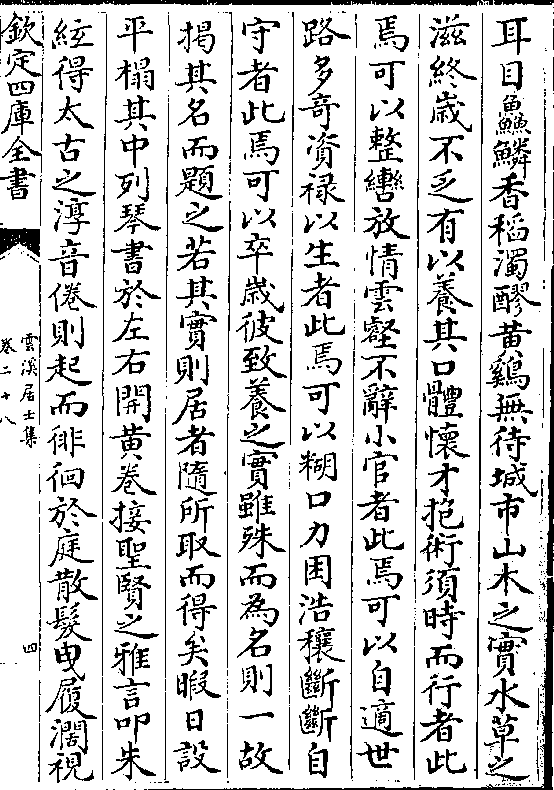 耳目鱻鱗香稻濁醪黄鷄無待城市山木之實水草之
滋終歳不乏有以養其口體懷才抱術須時而行者此
焉可以整轡放情雲壑不辭小官者此焉可以自適世
路多竒資禄以生者此焉可以糊口力困浩穰斷斷自
守者此焉可以卒歳彼致養之實雖殊而為名則一故
掲其名而題之若其實則居者隨所取而得矣暇日設
平榻其中列琴書於左右開黄巻接聖賢之雅言叩朱
絃得太古之淳音倦則起而徘徊於庭散髮曳履濶視
欽定四庫全書
雲溪居士集
巻二十八
四